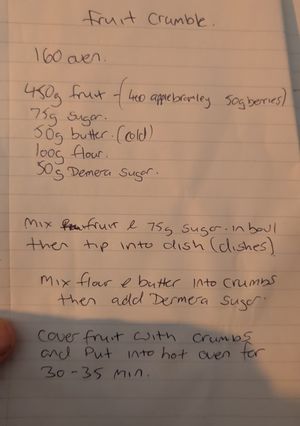 Fruit Crumble.
160 oven.
450g fruit - (400 applebramley 50g berries)
75g sugar.
50g butter. (cold)
100g flour.
50g Demera Sugar.
Mix fruit & 75g sugar. in bowl
then tip into dish (dishes)
Mix flour & butter into crumbs
then add Dermera sugar.
Cover fruit with crumbs
and put into hot oven for
30-35 min.